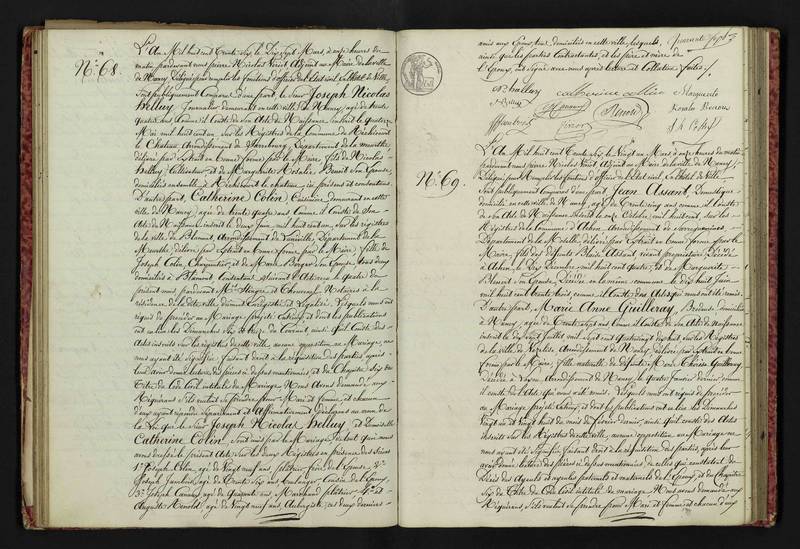 N° 68.
L'An Mil huit cent trente six, le Dix sept Mars, à onze heures du
matin pardevant nous pierre Nicolas Adjoint au Maire de la ville
de Nancy délégué pour remplir les fonctions d'officier de l'état civil à l'hôtel de Ville,
Sont publiquement Comparus d'une part, le Sieur Joseph Nicolas
Helluy, Journalier demeurant en cette ville de Nancy, âgé de trente
quatre ans, Comme il Conste de son Acte de Naissance, inscrit le quatorze
Mai mil huit cent un, Sur les Registres de la Commune de Réchicourt
le Château Arrondissement de Sarrebourg, Département de la meurthe
délivré par Extrait en bonne forme par le Maire, fils de Nicolas
Helluy, Cultivateur, et de Marguerite Rosalie Benoit Son Epouse
domiciliés ensemble à Réchicourt le château ici présens et consentans
D'autre part, Catherine Colin, Cuisinière, demeurant en cette
ville de Nancy, âgée de trente quatre ans Comme il Conste de Son
Acte de Naissance inscrit le deux Juin mil huit cent un, Sur les registres
de la ville de Blamont, Arrondissement de Lunéville, Département de la
Meurthe, délivré par Extrait en bonne forme par le Maire, fille de
Joseph Colin, et de Marie Berger Son Epouse tous deux
domiciliés à Blamont Consentant, suivant Acte reçu le quatre du
présent mois pardevant Notaires à la
résidence de la dite ville dûment Enregistré et Légalisé. Lesquels nous ont
requis de procéder au Mariage projeté entr'eux et dont les publications
ont eu lieu les Dimanches Six et treize du Courant ainsi qu'il Conste des
Actes inscrits sur les registres de cette ville, aucune opposition au Mariage, ne
nous ayant été Signifiée, faisant droit à la réquisition des parties après
leur avoir donné lecture des pièces ci dessus mentionnées, et du Chapitre Six du
Titre du Code Civil intitulé du Mariage. Nous Avons demandé aux
Requérans s'ils veulent se prendre pour Mari et femme, et chacun
d'eux ayant répondu Séparément et Affirmativement déclarons au nom de
la Loi que le Sieur Joseph Nicolas Helluy et Demoiselle
Catherine Colin, Sont unis par le Mariage, De tout quoi nous
avons dressé le présent Acte Sur les deux Registres en présence des Sieurs
1° Joseph Colin, âgé de vingt neuf ans, plâtrier, frère de l'Epouse, 2°
Joseph âgé de Trente Six ans, Cousin de l'Epoux,
3° Joseph âgé de quarante ans, Marchand plâtrier, 4° et
Auguste Arnold, âgé de Vingt neuf ans, Aubergiste; ces deux derniers
Quarante Sept
amis aux Epoux, tous domiciliés en cette ville, lesquels,
ainsi que les parties Contractantes, et les père et mère de
l'Epoux, ont Signé avec nous après lecture et Collation faites.
catherine collin
Marguerite
N° 69.
L'An Mil huit cent Trente Six, le Vingt un Mars à onze heures du matin
pardevant nous pierre Nicolas Adjoint au Maire de la ville de Nancy,
Délégué pour Remplir les fonctions d'officier de l'état civil à l'hôtel de Ville.
Sont publiquement Comparus d'une part Jean Assant, Domestique
domicilié en cette ville de Nancy, âgé de Trente cinq ans, comme il Conste
de son Acte de Naissance inscrit le onze Octobre mil huit cent, sur les
Registres de la Commune d'Achen, Arrondissement de Sarreguemines
Département de la Moselle, délivré par Extrait en bonne forme par le
Maire, fils des défunts Blaise Assant vivant propriétaire Décédé
à Achen, le Dix Décembre mil huit cent quatre, Et de Marguerite
son Epouse, Décédée en la même commune le dix huit Juin
mil huit cent Trente trois, comme il Conste des Actes qui nous ont été remis.
D'autre part, Marie Anne Guilleray, Brodeuse, domiciliée
à Nancy, âgée de Trente sept ans Comme il Conste de Son Acte de naissance
inscrit le dix sept Juillet mil sept cent quatre vingt dix huit sur les Registres
de la ville de Vézelise, Arrondissement de Nancy, délivré par Extrait en bonne
forme par le Maire, fille naturelle de défunte Thérèse Guilleray
Décédée à Arrondissement de Nancy, le quatre Janvier dernier comme
il conste de l'Acte qui nous a été remis. Lesquels nous ont requis de procéder
au Mariage projeté entr'eux, et dont les publications ont eu lieu les Dimanches
Vingt un et vingt huit du mois de février dernier, ainsi qu'il conste des Actes
inscrits sur les Registres de cette ville, aucune opposition au Mariage ne
nous ayant été Signifiée faisant droit à la réquisition des parties, après leur
avoir donné lecture des pièces ci dessus mentionnées, de celles qui constatent le
Décès des Ayeuls et ayeules paternels et maternels de l'Epoux, et du Chapitre
Six du Titre du Code Civil intitulé du mariage. Nous avons demandé aux
Requérans, S'ils veulent se prendre pour Mari et femme et chacun d'eux